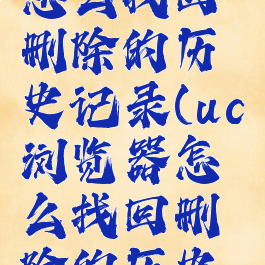 怎么找回
删除的历
史记录(uc
浏览器怎
么找回删
除的历史